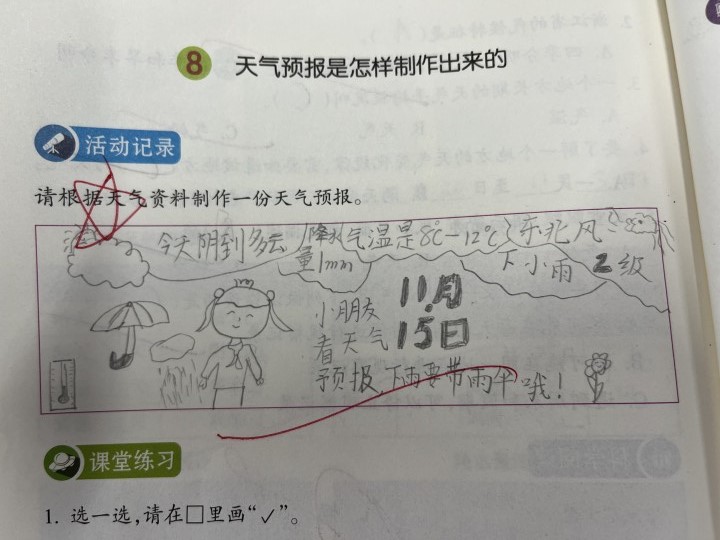 8 天气预报是怎样制作出来的
活动记录
请根据天气资料制作一份天气预报。
今天阴到多云 降水量1mm 气温是8℃-12℃ 东北风2级
下小雨
小朋友
看天气
预报,下雨要带雨伞哦!
11月
15日
课堂练习
1. 选一选,请在□里画“✓”。